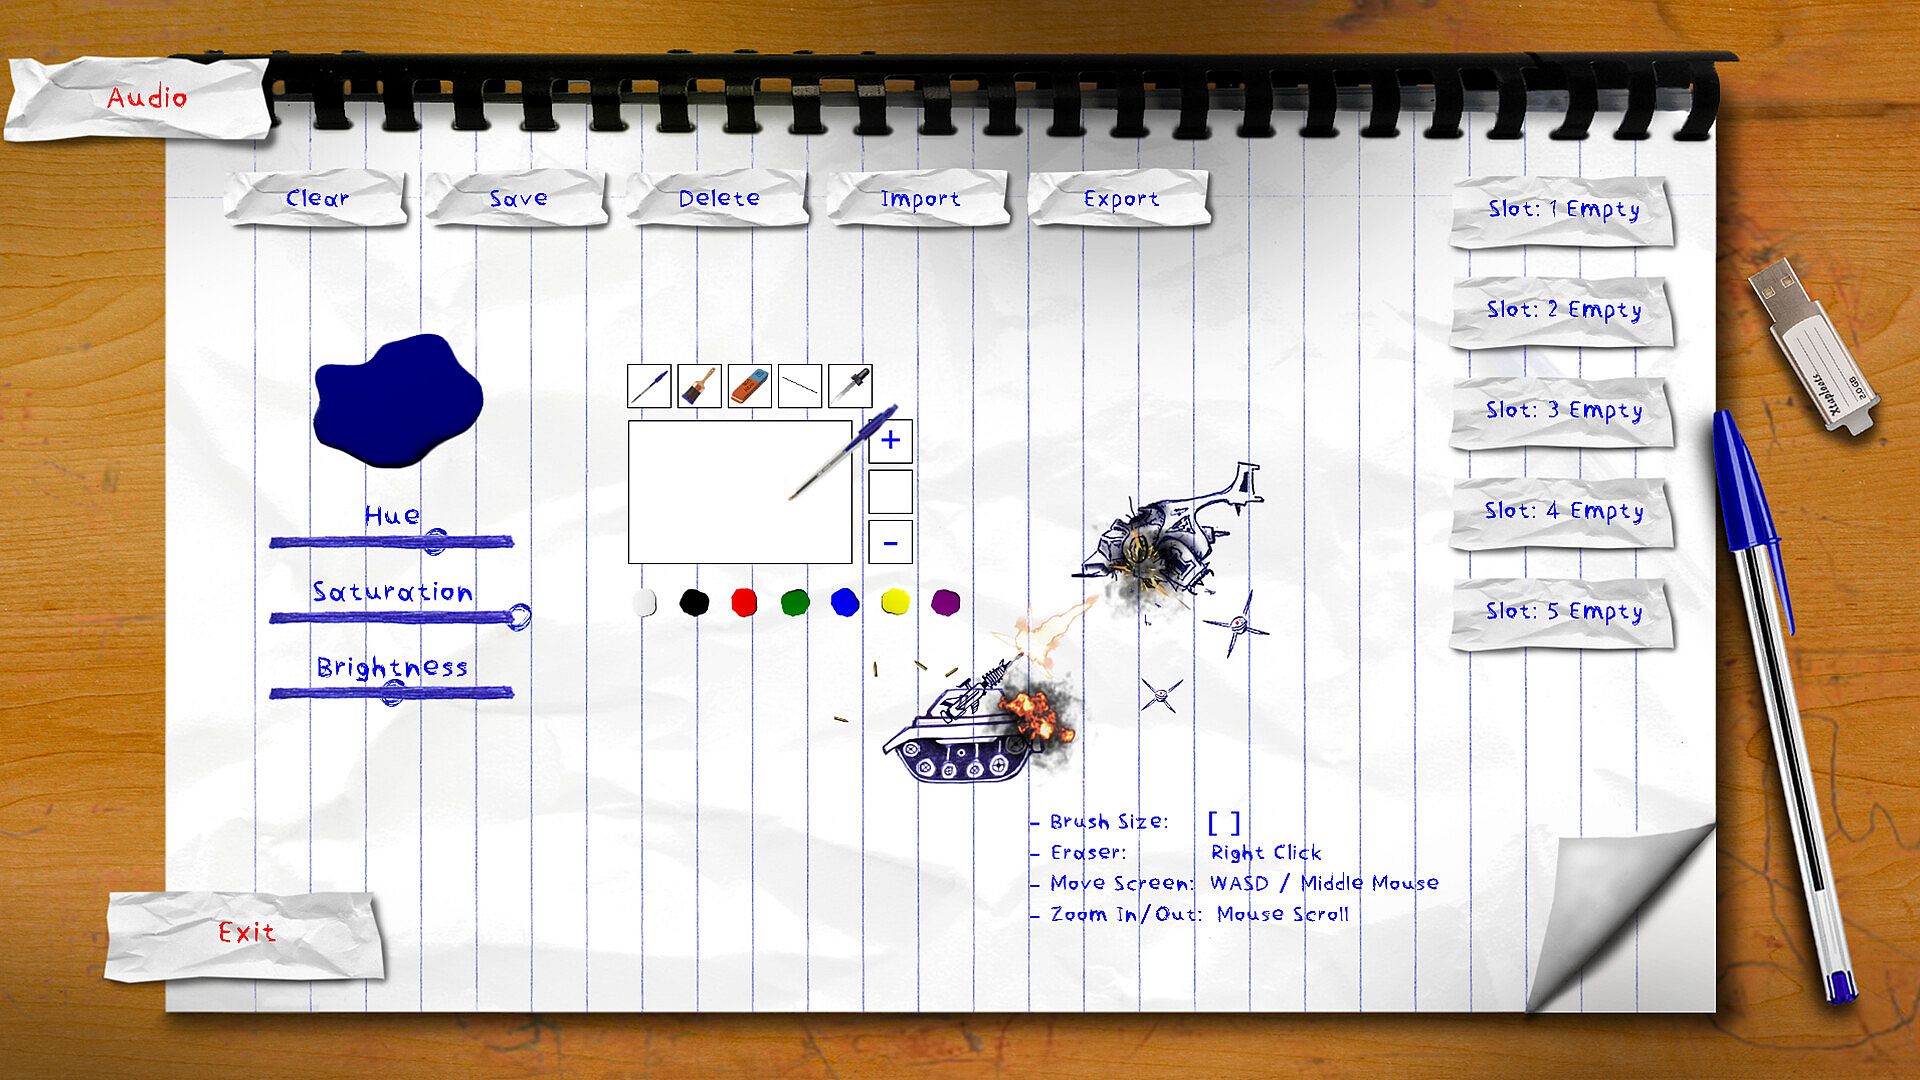 Audio
Clear
Save
Delete
Import
Export
Slot: 1 Empty
Slot: 2 Empty
Slot: 3 Empty
Slot: 4 Empty
Slot: 5 Empty
Hue
Saturation
Brightness
+
-
- Brush Size: [ ]
- Eraser: Right Click
- Move Screen: WASD / Middle Mouse
- Zoom In/Out: Mouse Scroll
Exit
2.0GB